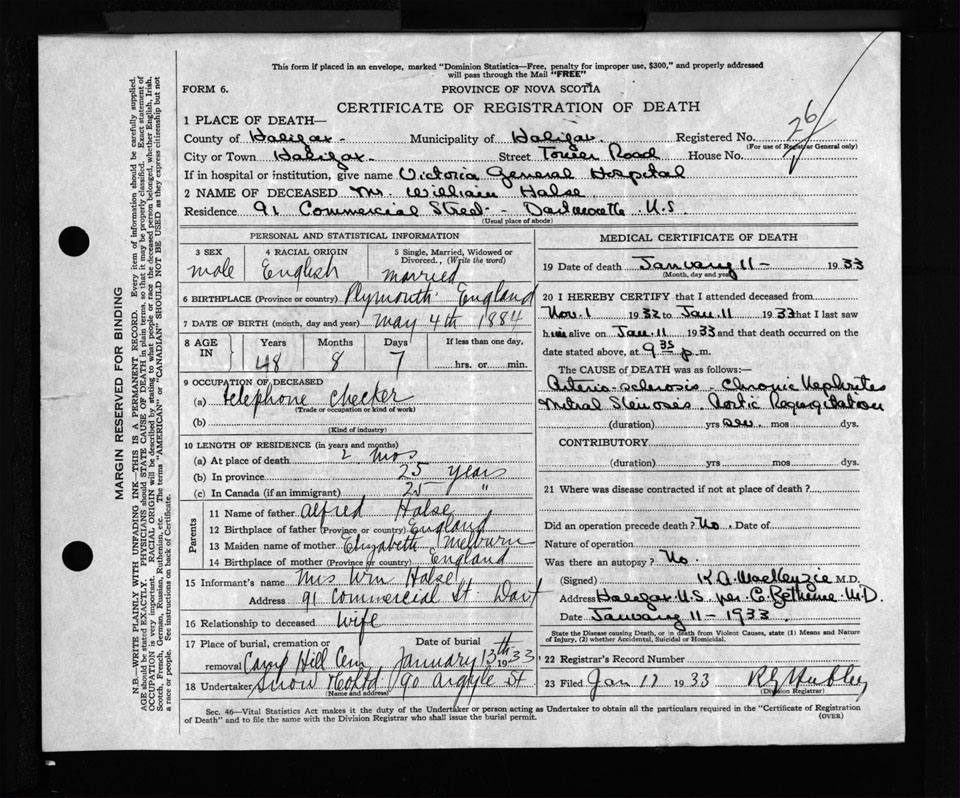 This form if placed in an envelope, marked "Dominion Statistics—Free, penalty for improper use, $300," and properly addressed
will pass through the Mail "FREE"
FORM 6. PROVINCE OF NOVA SCOTIA
CERTIFICATE OF REGISTRATION OF DEATH
1 PLACE OF DEATH—
County of Halifax - Municipality of Halifax. Registered No. 26
(For use of Registrar General only)
City or Town Halifax - Street Tower Road House No.
If in hospital or institution, give name Victoria General Hospital
2 NAME OF DECEASED Mr. William Halse
Residence 91 Commercial Street - Dartmouth N.S.
(Usual place of abode)
PERSONAL AND STATISTICAL INFORMATION
3 SEX 4 RACIAL ORIGIN 5 Single, Married, Widowed or
Divorced., (Write the word)
male English married
6 BIRTHPLACE (Province or country) Plymouth England
7 DATE OF BIRTH (month, day and year) may 4th 1884
8 AGE IN Years Months Days If less than one day,
48 8 7 hrs. or min.
9 OCCUPATION OF DECEASED
(a) telephone checker
(Trade or occupation or kind of work)
(b)
(Kind of industry)
10 LENGTH OF RESIDENCE (in years and months)
(a) At place of death 2 mos
(b) In province 25 years
(c) In Canada (if an immigrant) 25 "
Parents
11 Name of father Alfred Halse
12 Birthplace of father (Province or country) England
13 Maiden name of mother Elizabeth Melburn
14 Birthplace of mother (Province or country) England
15 Informant's name Mrs Wm Halse
Address 91 Commercial St. Dart
16 Relationship to deceased wife
17 Place of burial, cremation or Date of burial
removal Camp Hill Cem January 13th 1933
18 Undertaker Snow & Co Ltd 90 Argyle St
(Name and address)
MEDICAL CERTIFICATE OF DEATH
19 Date of death January 11 - 1933
(Month, day and year)
20 I HEREBY CERTIFY that I attended deceased from
Nov. 1 1932 to Jan. 11 1933 that I last saw
him alive on Jan. 11 1933 and that death occurred on the
date stated above, at 9 35 p.m.
The CAUSE OF DEATH was as follows:
Arterio-sclerosis - Chronic Nephritis
Mitral Stenosis. Aortic Regurgitation
(duration) yrs mos dys.
CONTRIBUTORY
(duration) yrs mos dys.
21 Where was disease contracted if not at place of death?
Did an operation precede death? No. Date of
Nature of operation
Was there an autopsy? No.
(Signed) K.A. MacKenzie M.D.
Address Halifax N.S. per C. Bethune M.D.
Date January 11 - 1933.
State the Disease causing Death, or in death from Violent Causes, state (1) Means and Nature
of Injury, (2) whether Accidental, Suicidal or Homicidal.
22 Registrar's Record Number
23 Filed Jan 17 1933
(Division Registrar)
Sec. 46—Vital Statistics Act makes it the duty of the Undertaker or person acting as Undertaker to obtain all the particulars required in the "Certificate of Registration
of Death" and to file the same with the Division Registrar who shall issue the burial permit. (OVER)
MARGIN RESERVED FOR BINDING
N.B.—WRITE PLAINLY WITH UNFADING INK—THIS IS A PERMANENT RECORD. Every item of information should be carefully supplied.
AGE should be stated EXACTLY. PHYSICIANS should STATE CAUSE OF DEATH in plain terms, so that it may be properly classified. Exact statement of
OCCUPATION is very important. RACIAL ORIGIN will be described by stating to what people or race the deceased person belonged, whether English, Irish,
Scotch, French, German, Russian, Ruthenian, etc. The terms "AMERICAN" or "CANADIAN" SHOULD NOT BE USED as they express citizenship but not
a race or people. See instructions on back of Certificate.